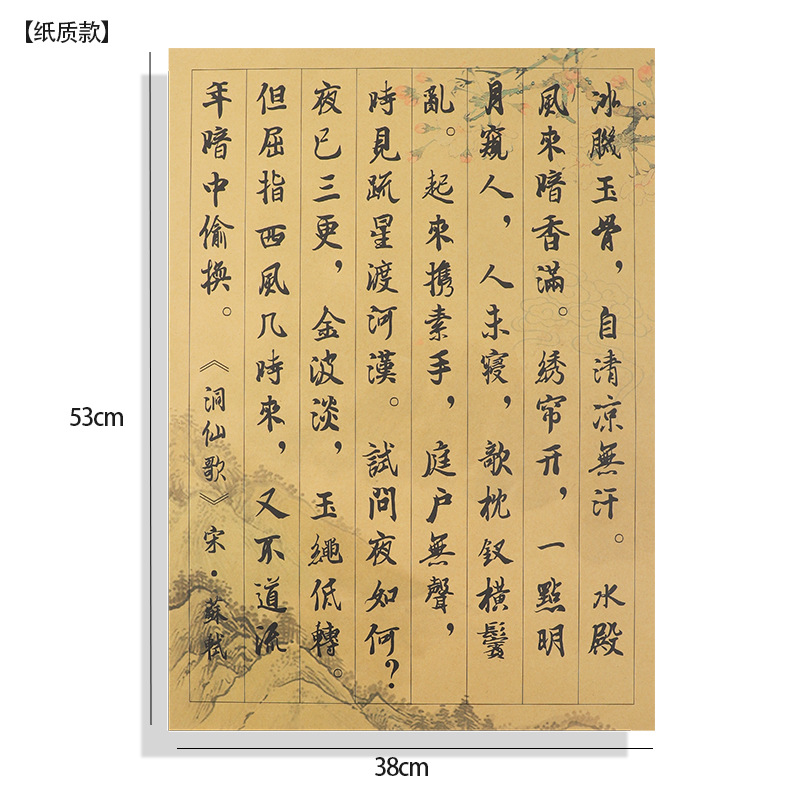 【纸质款】
冰肌玉骨，自清凉無汗。水殿
風來暗香滿。绣帘开，一點明
月窺人，人未寢，歌枕釵横鬢
亂。起來携素手，庭户無聲，
時見疏星渡河漢。試問夜如何？
夜已三更，金波淡，玉繩低轉。
但屈指西風几時來，又不道流
年暗中偷换。《洞仙歌》宋·蘇軾
53cm
38cm